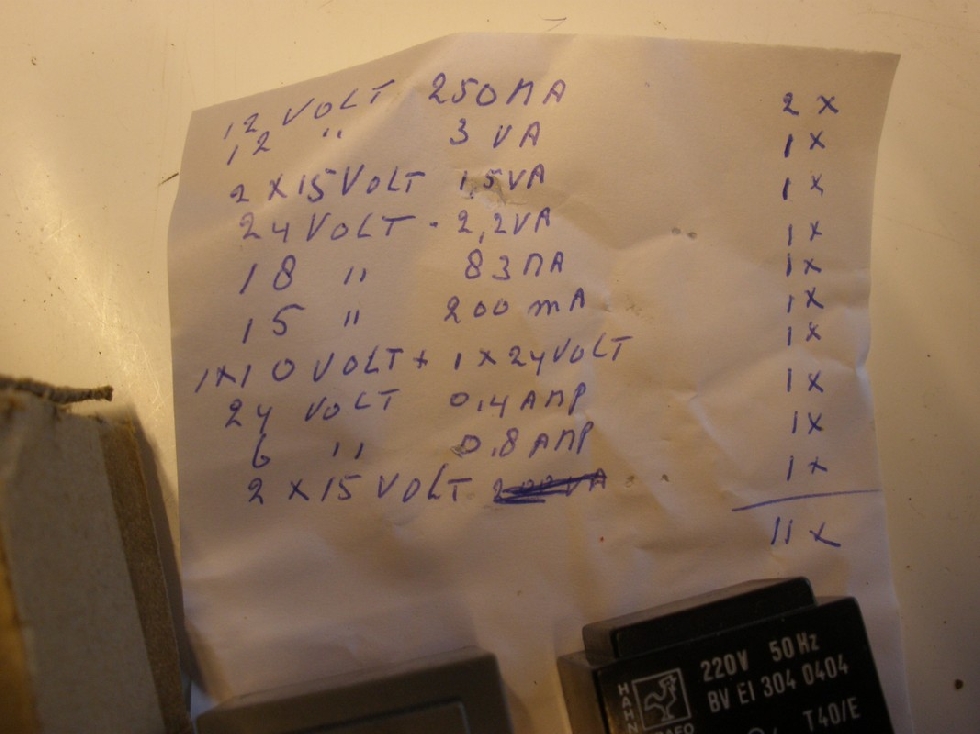 12 VOLT 250 MA 2 x
12 " 3 VA 1 x
2 X 15 VOLT 1,5VA 1 x
24 VOLT - 2,2VA 1 x
18 " 83 MA 1x
15 " 200 mA 1x
1x10 VOLT + 1 x 24 VOLT 1x
24 VOLT 0,4 AMP 1x
6 " 0,8 AMP 1x
2 x 15 VOLT 1x
11 x
220V 50 Hz
BV EI 304 0404
HAHN
T40/E